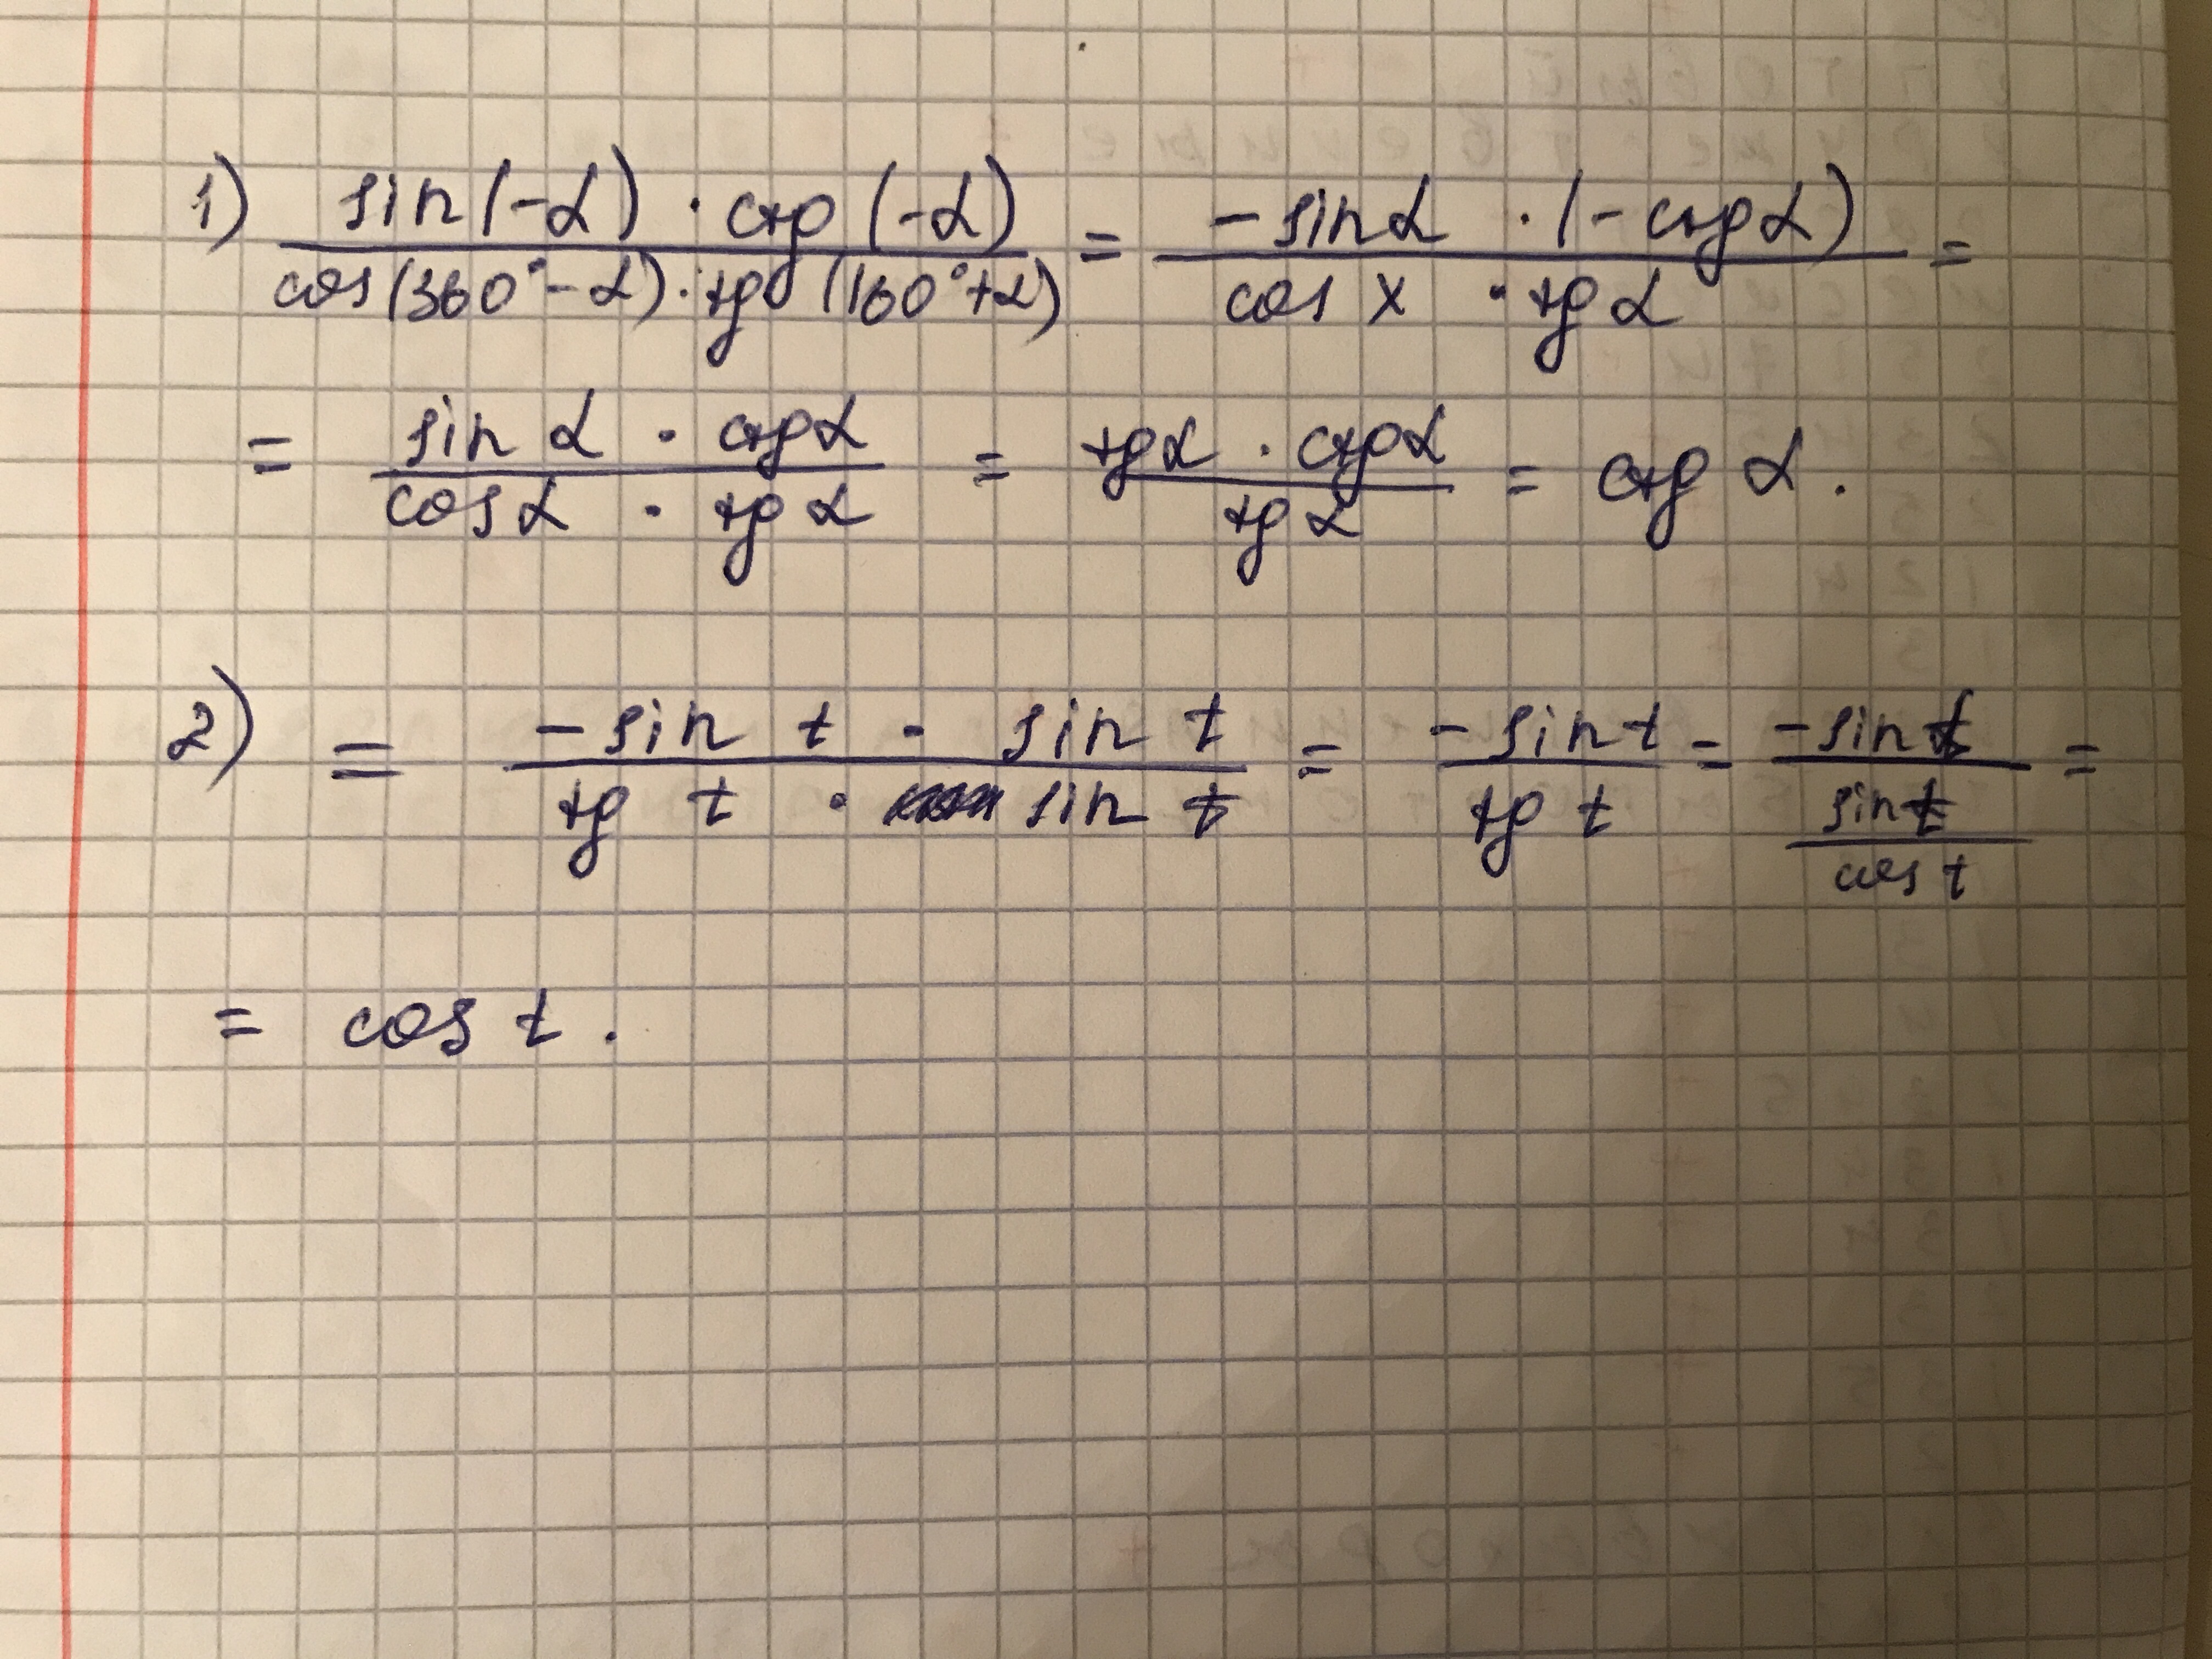 1) sin(-α) · ctg(-α) / cos(360°-α) · tg(160°+α) = -sinα · (-ctgα) / cos x · tg α =
= sin α · ctgα / cosα · tg α = tgα · ctgα / tg α = ctg α.
2) = -sin t · sin t / tg t · sin t = -sin t / tg t = -sin t / sin t / cos t =
= cos t.